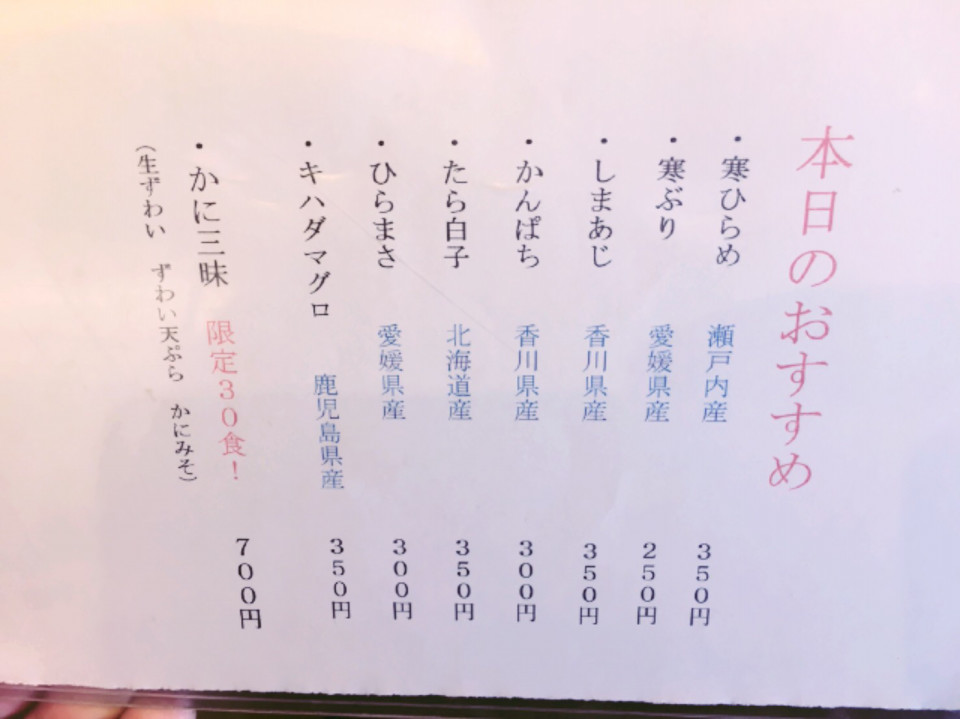 本日のおすすめ
・寒ひらめ 瀬戸内産 350円
・寒ぶり 愛媛県産 250円
・しまあじ 香川県産 350円
・かんぱち 香川県産 300円
・たら白子 北海道産 350円
・ひらまさ 愛媛県産 300円
・キハダマグロ 鹿児島県産 350円
・かに三昧 限定30食! 700円
(生ずわい ずわい天ぷら かにみそ)